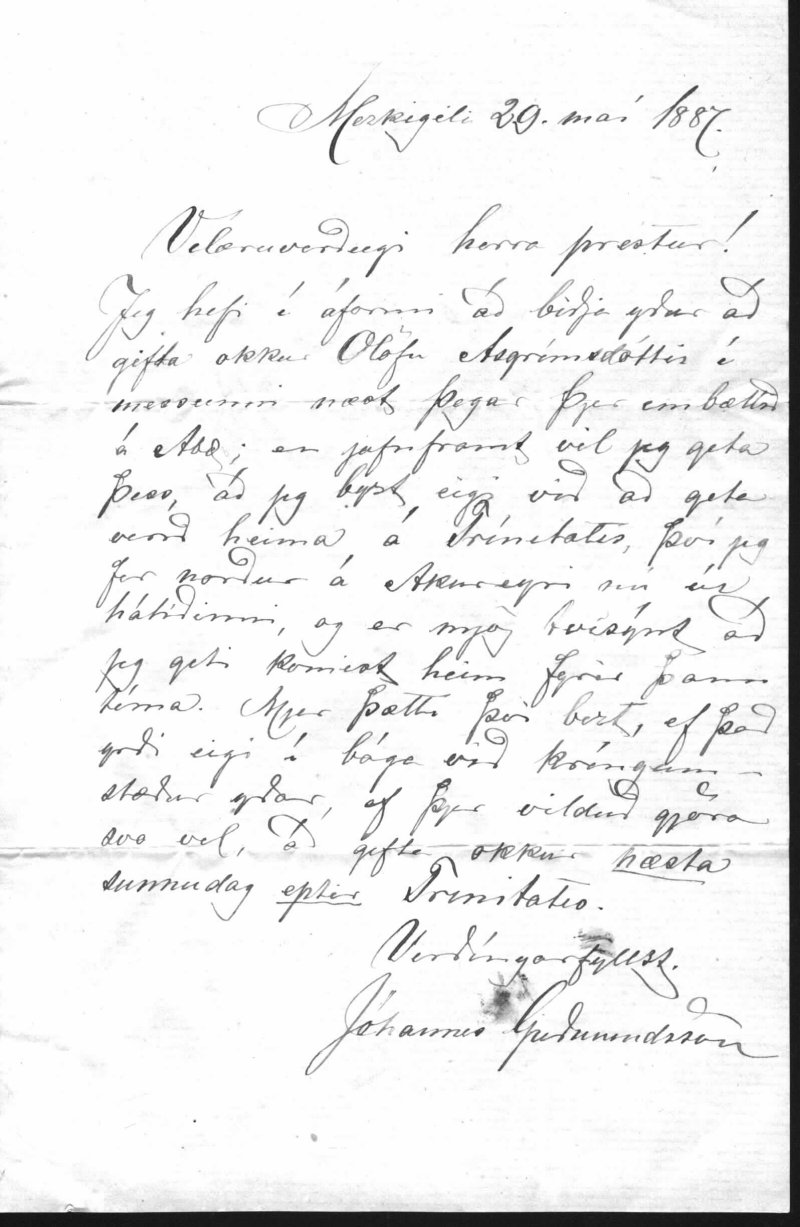 Merkigili 29. maí 1887.
Velæruverðugi herra prestur!
Jeg hefi í áformi að biðja yður að
gifta okkur Ólöfu Asgrímsdóttir í
messunni næst þegar þjer embættið
á Abæ; en jafnframt vil jeg geta
þess, að jeg býst eigi við að geta
verið heima á Trínitatis, því jeg
fer norður á Akureyri nú úr
hátíðinni, og er mjög tvísýnt að
jeg geti komist heim fyrir þann
tíma. Mjer þætti því bezt, ef það
yrði eigi í bága við kríngum-
stæður yðar, ef þjer vilduð gjöra
svo vel, að gifta okkur næsta
sunnudag eptir Trinitatis.
Virðíngarfyllst.
Jóhannes Guðmundsson